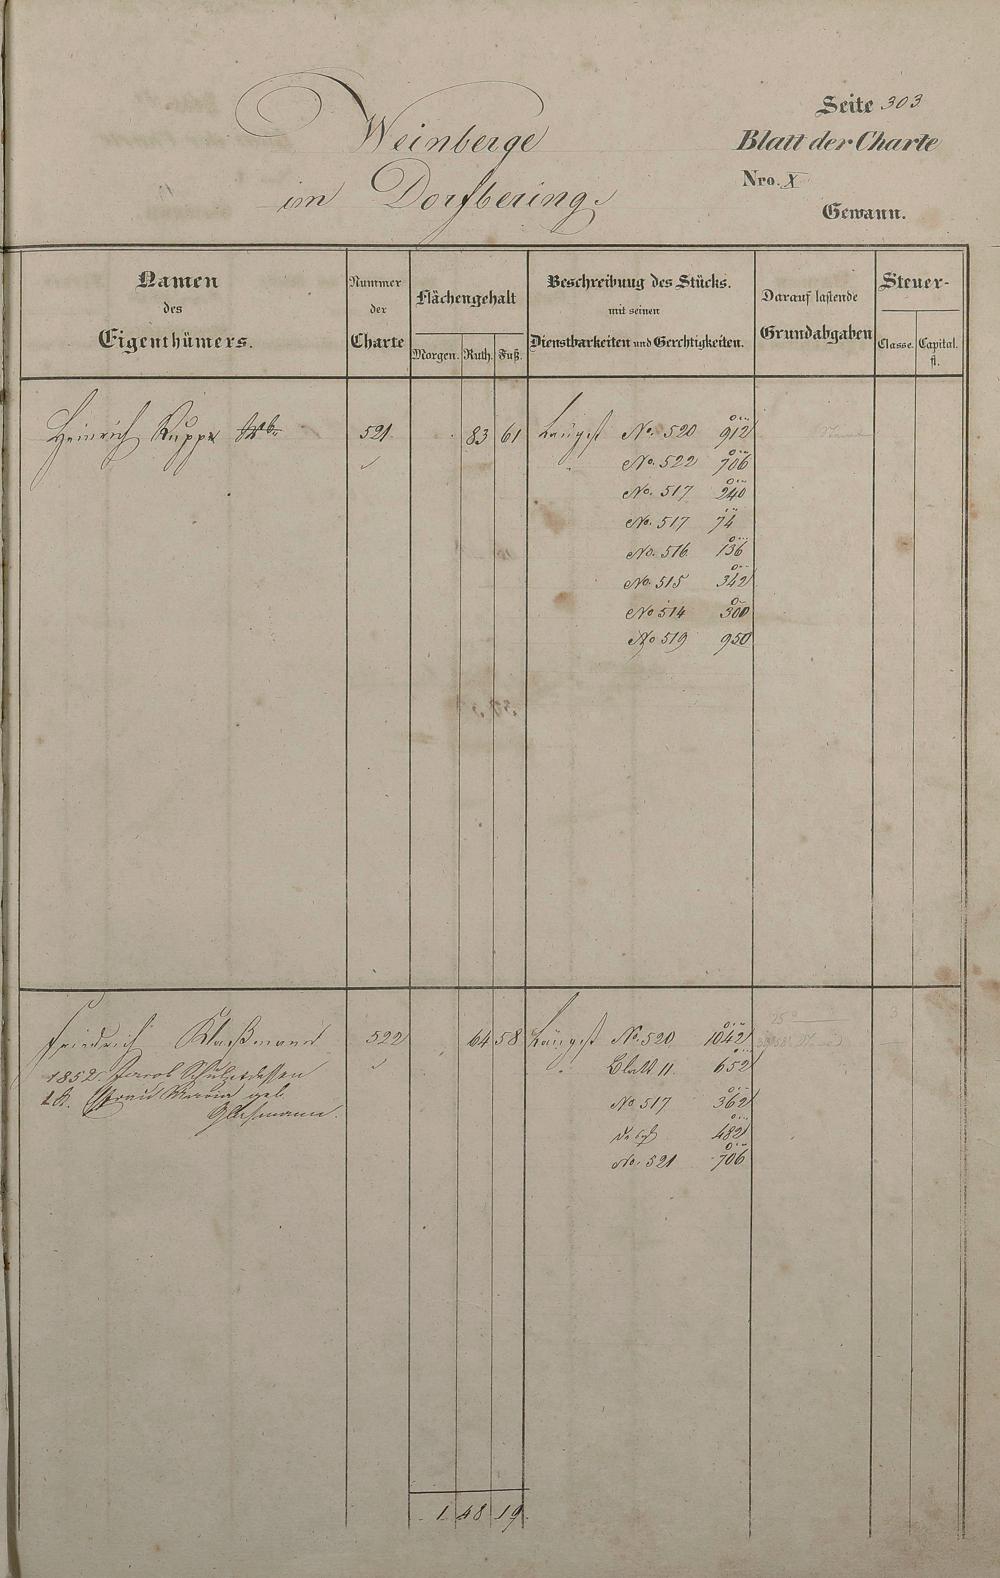 Seite 303
Weinberge
Blatt der Charte
im Dorfbering.
Nro. X
Gewann.
Namen
des
Eigenthümers.
Nummer
der
Charte
Flächengehalt
Morgen. Ruth. Fuß.
Beschreibung des Stücks.
mit seinen
Dienstbarkeiten und Gerechtigkeiten.
Darauf lastende
Grundabgaben
Steuer-
Classe. Capital.
fl.
Heinrich Rupp 521 83 61 Längst No. 520 912
No. 522 706
No. 517 240
No. 517 74
No. 516 136
No. 515 342
No 514 300
No 519 950
Friedrich Klaßmann 522 64 58 Längst No. 520 1042
1852. Jacob Schulz dessen Blatt 11 652
Ehefrau Maria geb. No 517 362
482
No. 521 706
1 48 19